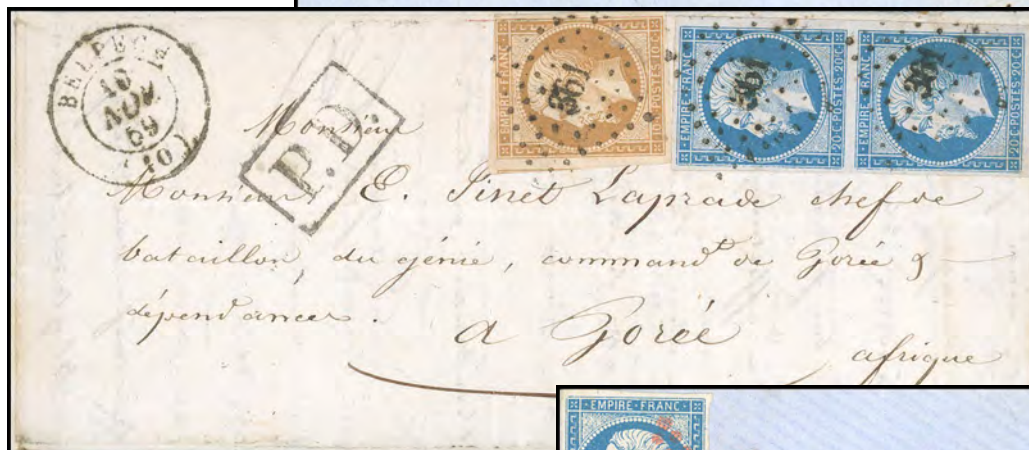 BELPECH
10
(10)
P.D.
361
EMPIRE FRANC
10 C POSTES 10 C
361
EMPIRE FRANC
20 C POSTES 20 C
EMPIRE FRANC
20 C POSTES 20 C
Monsieur
Monsieur E. Pinet Laprade chef de
bataillon, du génie, command^t de Gorée &
dépendances.
a Gorée
afrique
EMPIRE FRANC